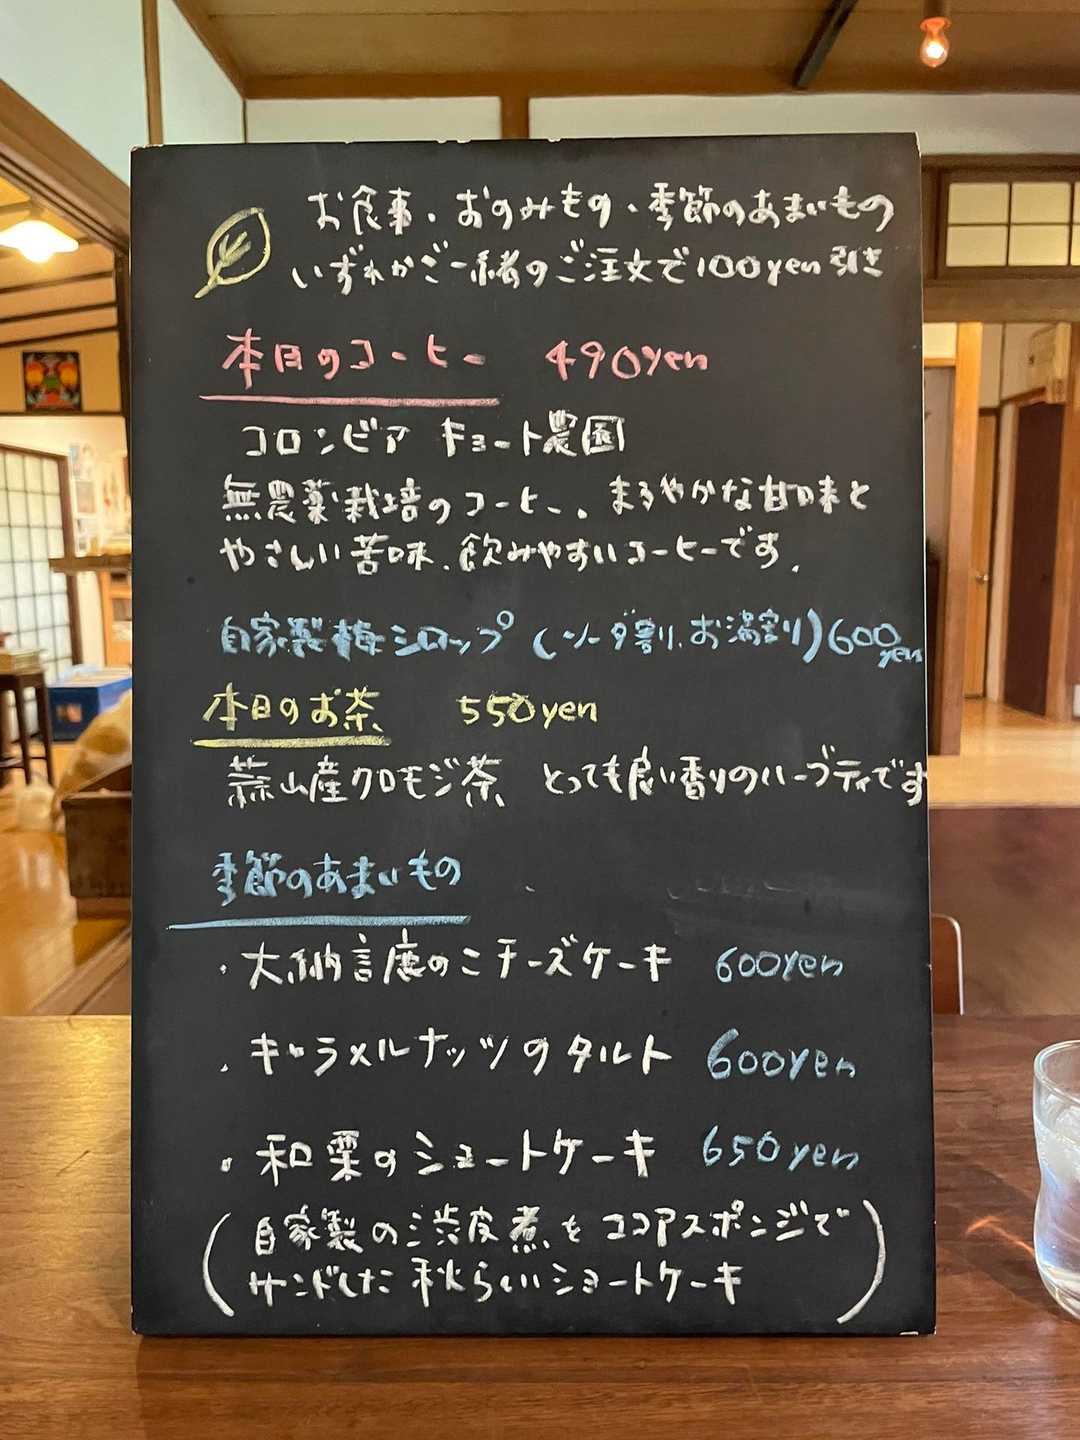 お食事・おのみもの・季節のあまいもの
いずれかご一緒のご注文で100yen引き
本日のコーヒー 490yen
コロンビア キョート農園
無農薬栽培のコーヒー。まろやかな甘味と
やさしい苦味、飲みやすいコーヒーです。
自家製梅シロップ(ソーダ割り、お湯割り)600yen
本日のお茶 550yen
蒜山産クロモジ茶 とっても良い香りのハーブティです
季節のあまいもの
・大納言鹿のこチーズケーキ 600yen
・キャラメルナッツのタルト 600yen
・和栗のショートケーキ 650yen
(自家製の渋皮煮をココアスポンジで
サンドした秋らしいショートケーキ)